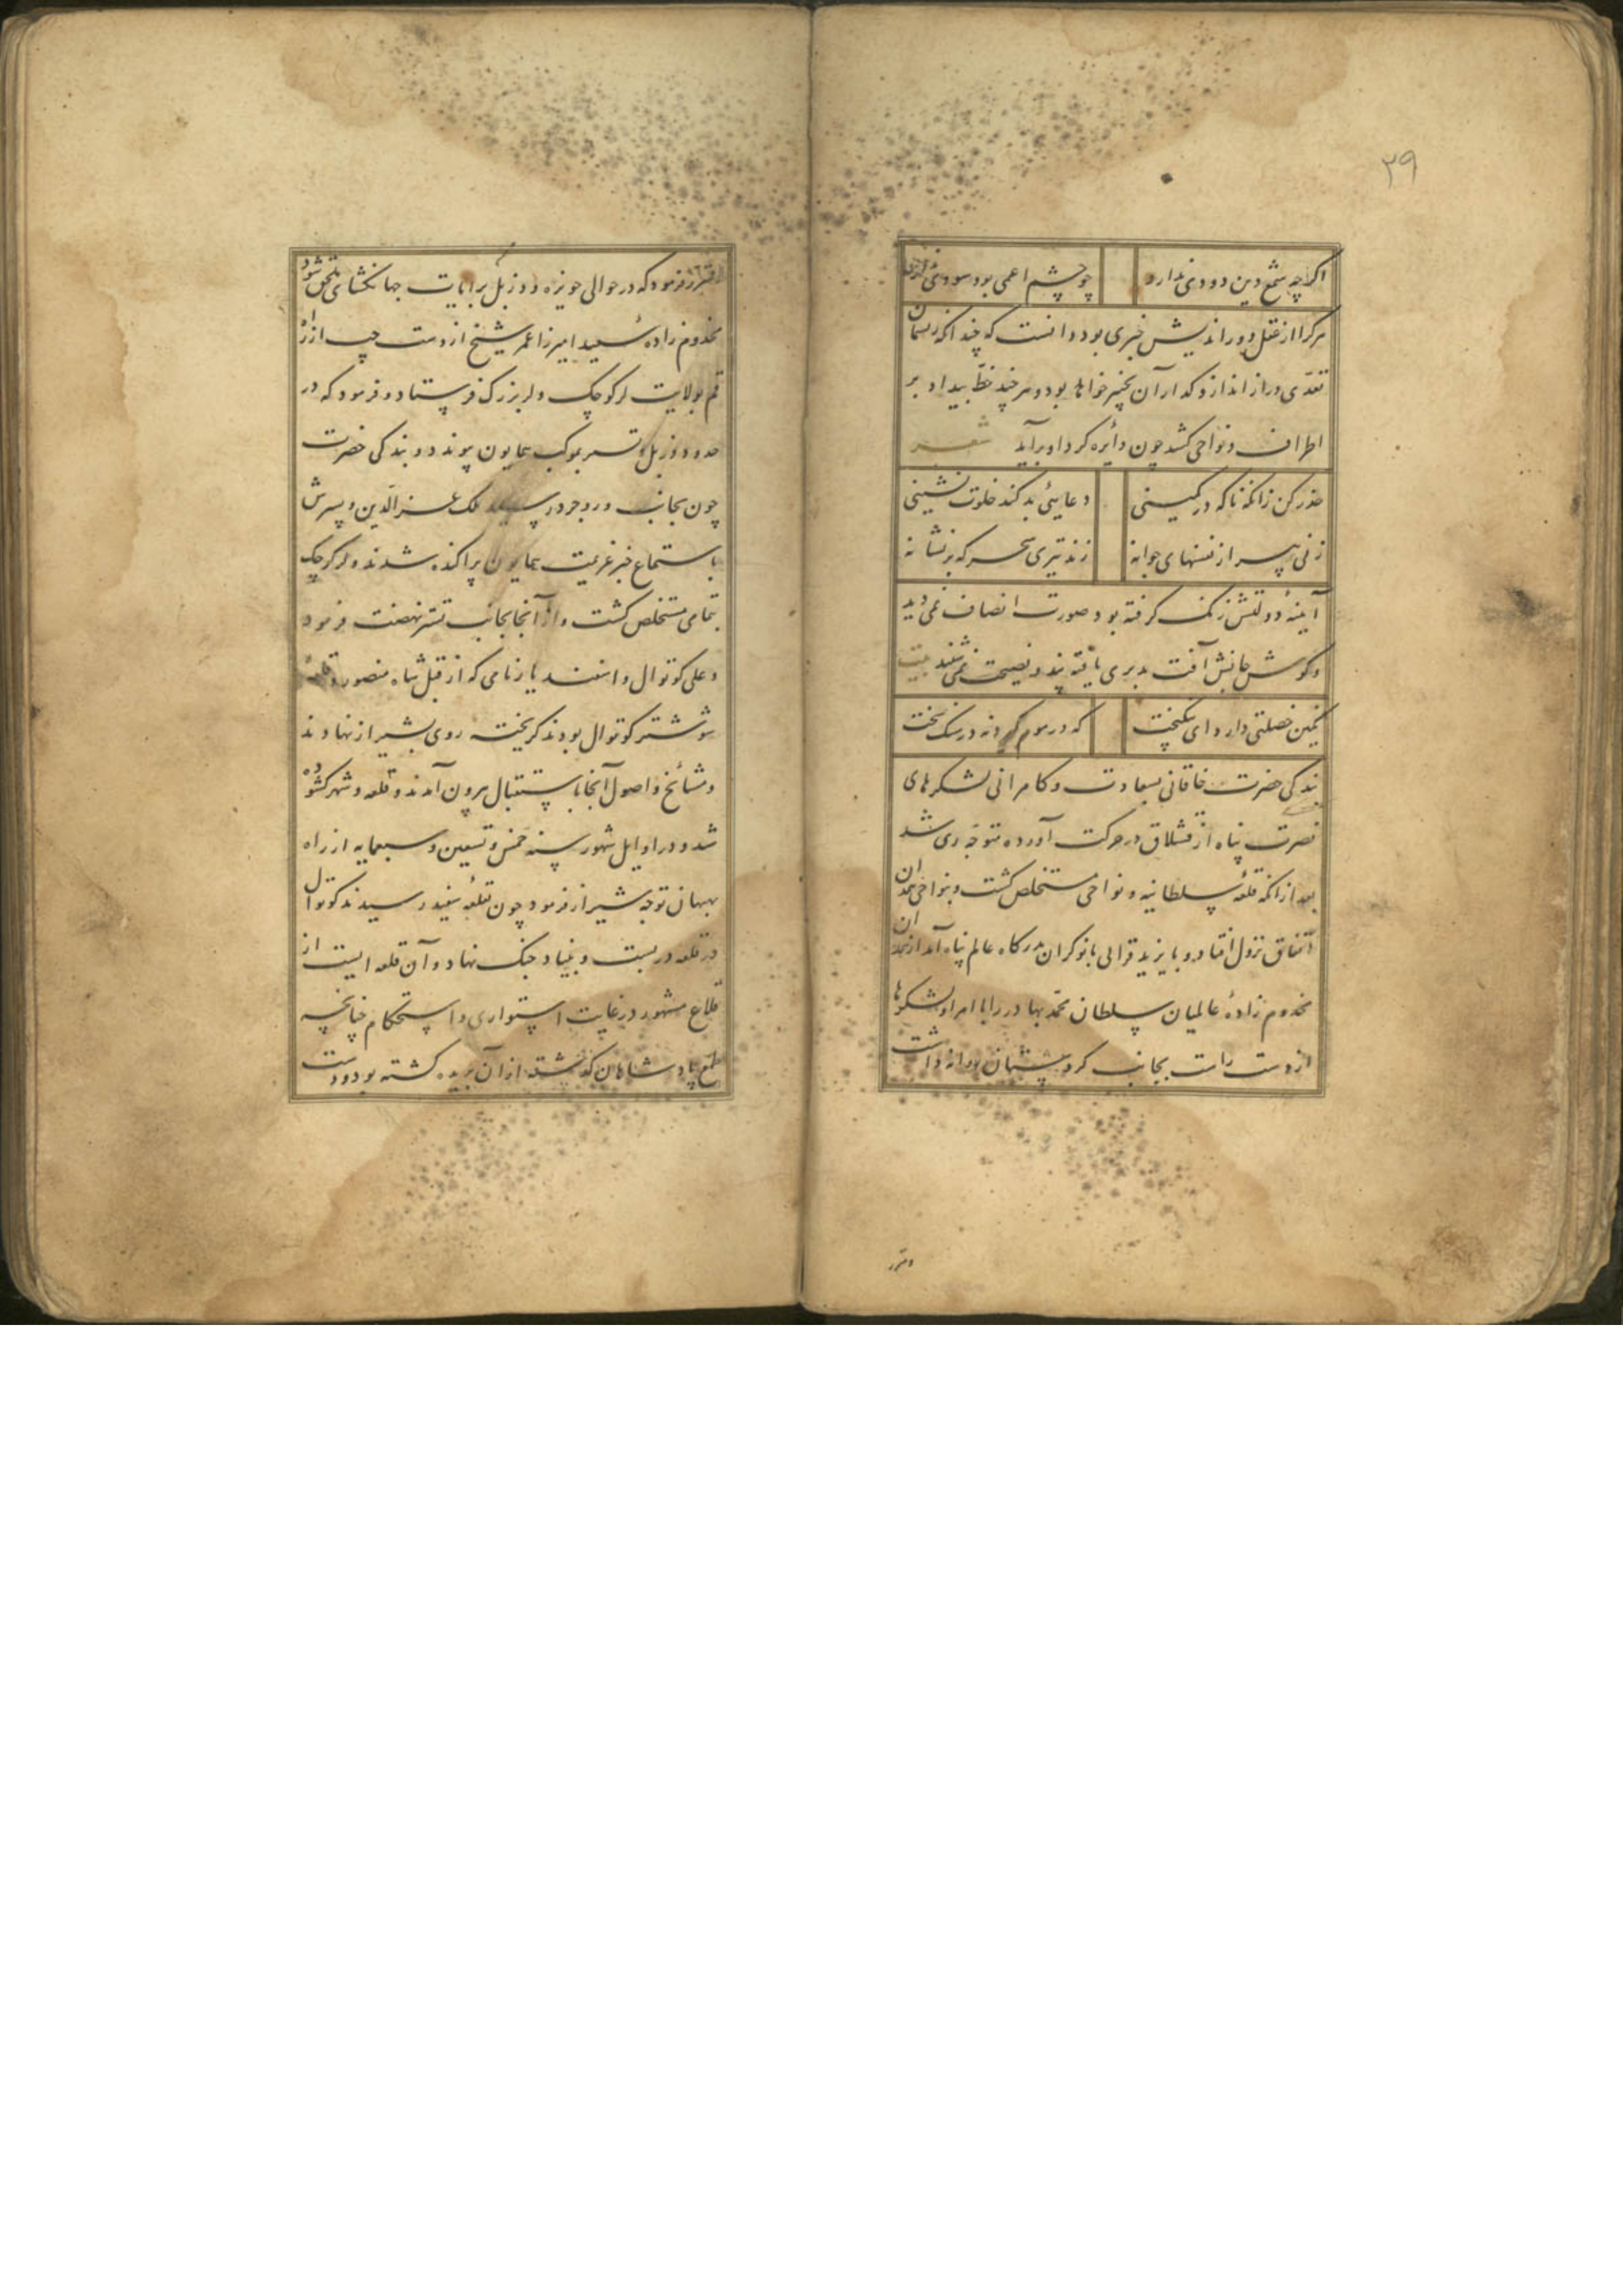 ۳۹
اکرچه شمع دین دودی ندارد چو چشم اعمی بود سودی ندارد
هرکرا از عقل دوراندیش خبری بود دانست که چندانکه ریسمان
تعدی دراز اندازد کذار آن بچنبر خواهد بود و هرچند خط بیداد بر
اطراف و نواحی کشد چون دایره کرد او برآید شعر
حذر کن زانکه ناکه در کمینی دعایی بد کند خلوت نشینی
زنی پیر از نفسهای جوانه زند تیری سحرکه بر نشانه
آینهٔ دولتش زنک کرفته بود صورت انصاف نمی دید
و کوش جانش آفت بدیری یافته پند و نصیحت نمی شنید بیت
نکین خصلتی دارد ای نیکبخت که در موم کیرد نه در سنک سخت
بندکی حضرت خاقانی بسعادت و کامرانی لشکرهای
نصرت پناه از قشلاق در حرکت آورده متوجه ری شد
بعد از انکه قلعهٔ سلطانیه و نواحی مستخلص کشت و بنواحی همدان
اتفاق نزول افتاد و بایزید قرالی با نوکران بدرکاه عالم پناه آمد از همدان
مخدوم زادهٔ عالمیان سلطان محمد بهادر را با امرا و لشکرها
از دست راست بجانب کردستان روانه داشت
و مقرر
و مقرر فرمود که در حوالی حویزه و دزبل برایات جهانکشای ملحق شود
مخدوم زاده سعید امیرزا عمر شیخ از دست چپ از راه
قم بولایت لر کوچک و لر بزرک فرستاد و فرمود که در
حدود دزبل و تستر بموکب همایون پیوندد و بندکی حضرت
چون بجانب وروجرد رسید ملک عزالدین و پسرش
باستماع خبر عزیمت همایون پراکنده شدند و لر کوچک
بتمامی مستخلص کشت و از آنجا بجانب تستر نهضت فرمود
و علی کوتوال و اسفندیار نامی که از قبل شاه منصور در قلعهٔ
شوشتر کوتوال بودند کریخته روی بشیراز نهادند
و مشایخ و اصول آنجا باستقبال بیرون آمدند و قلعه و شهر کشوده
شد و در اوایل شهور سنه خمس و تسعین و سبعمایه از راه
بهبهان توجه شیراز فرمود چون بقلعهٔ سفید رسیدند کوتوال
در قلعه در بست و بنیاد جنک نهاد و آن قلعه ایست از
قلاع مشهور در غایت استواری و استحکام چنانچه
طمع پادشاهان کذشته از آن بریده کشته بود و دست